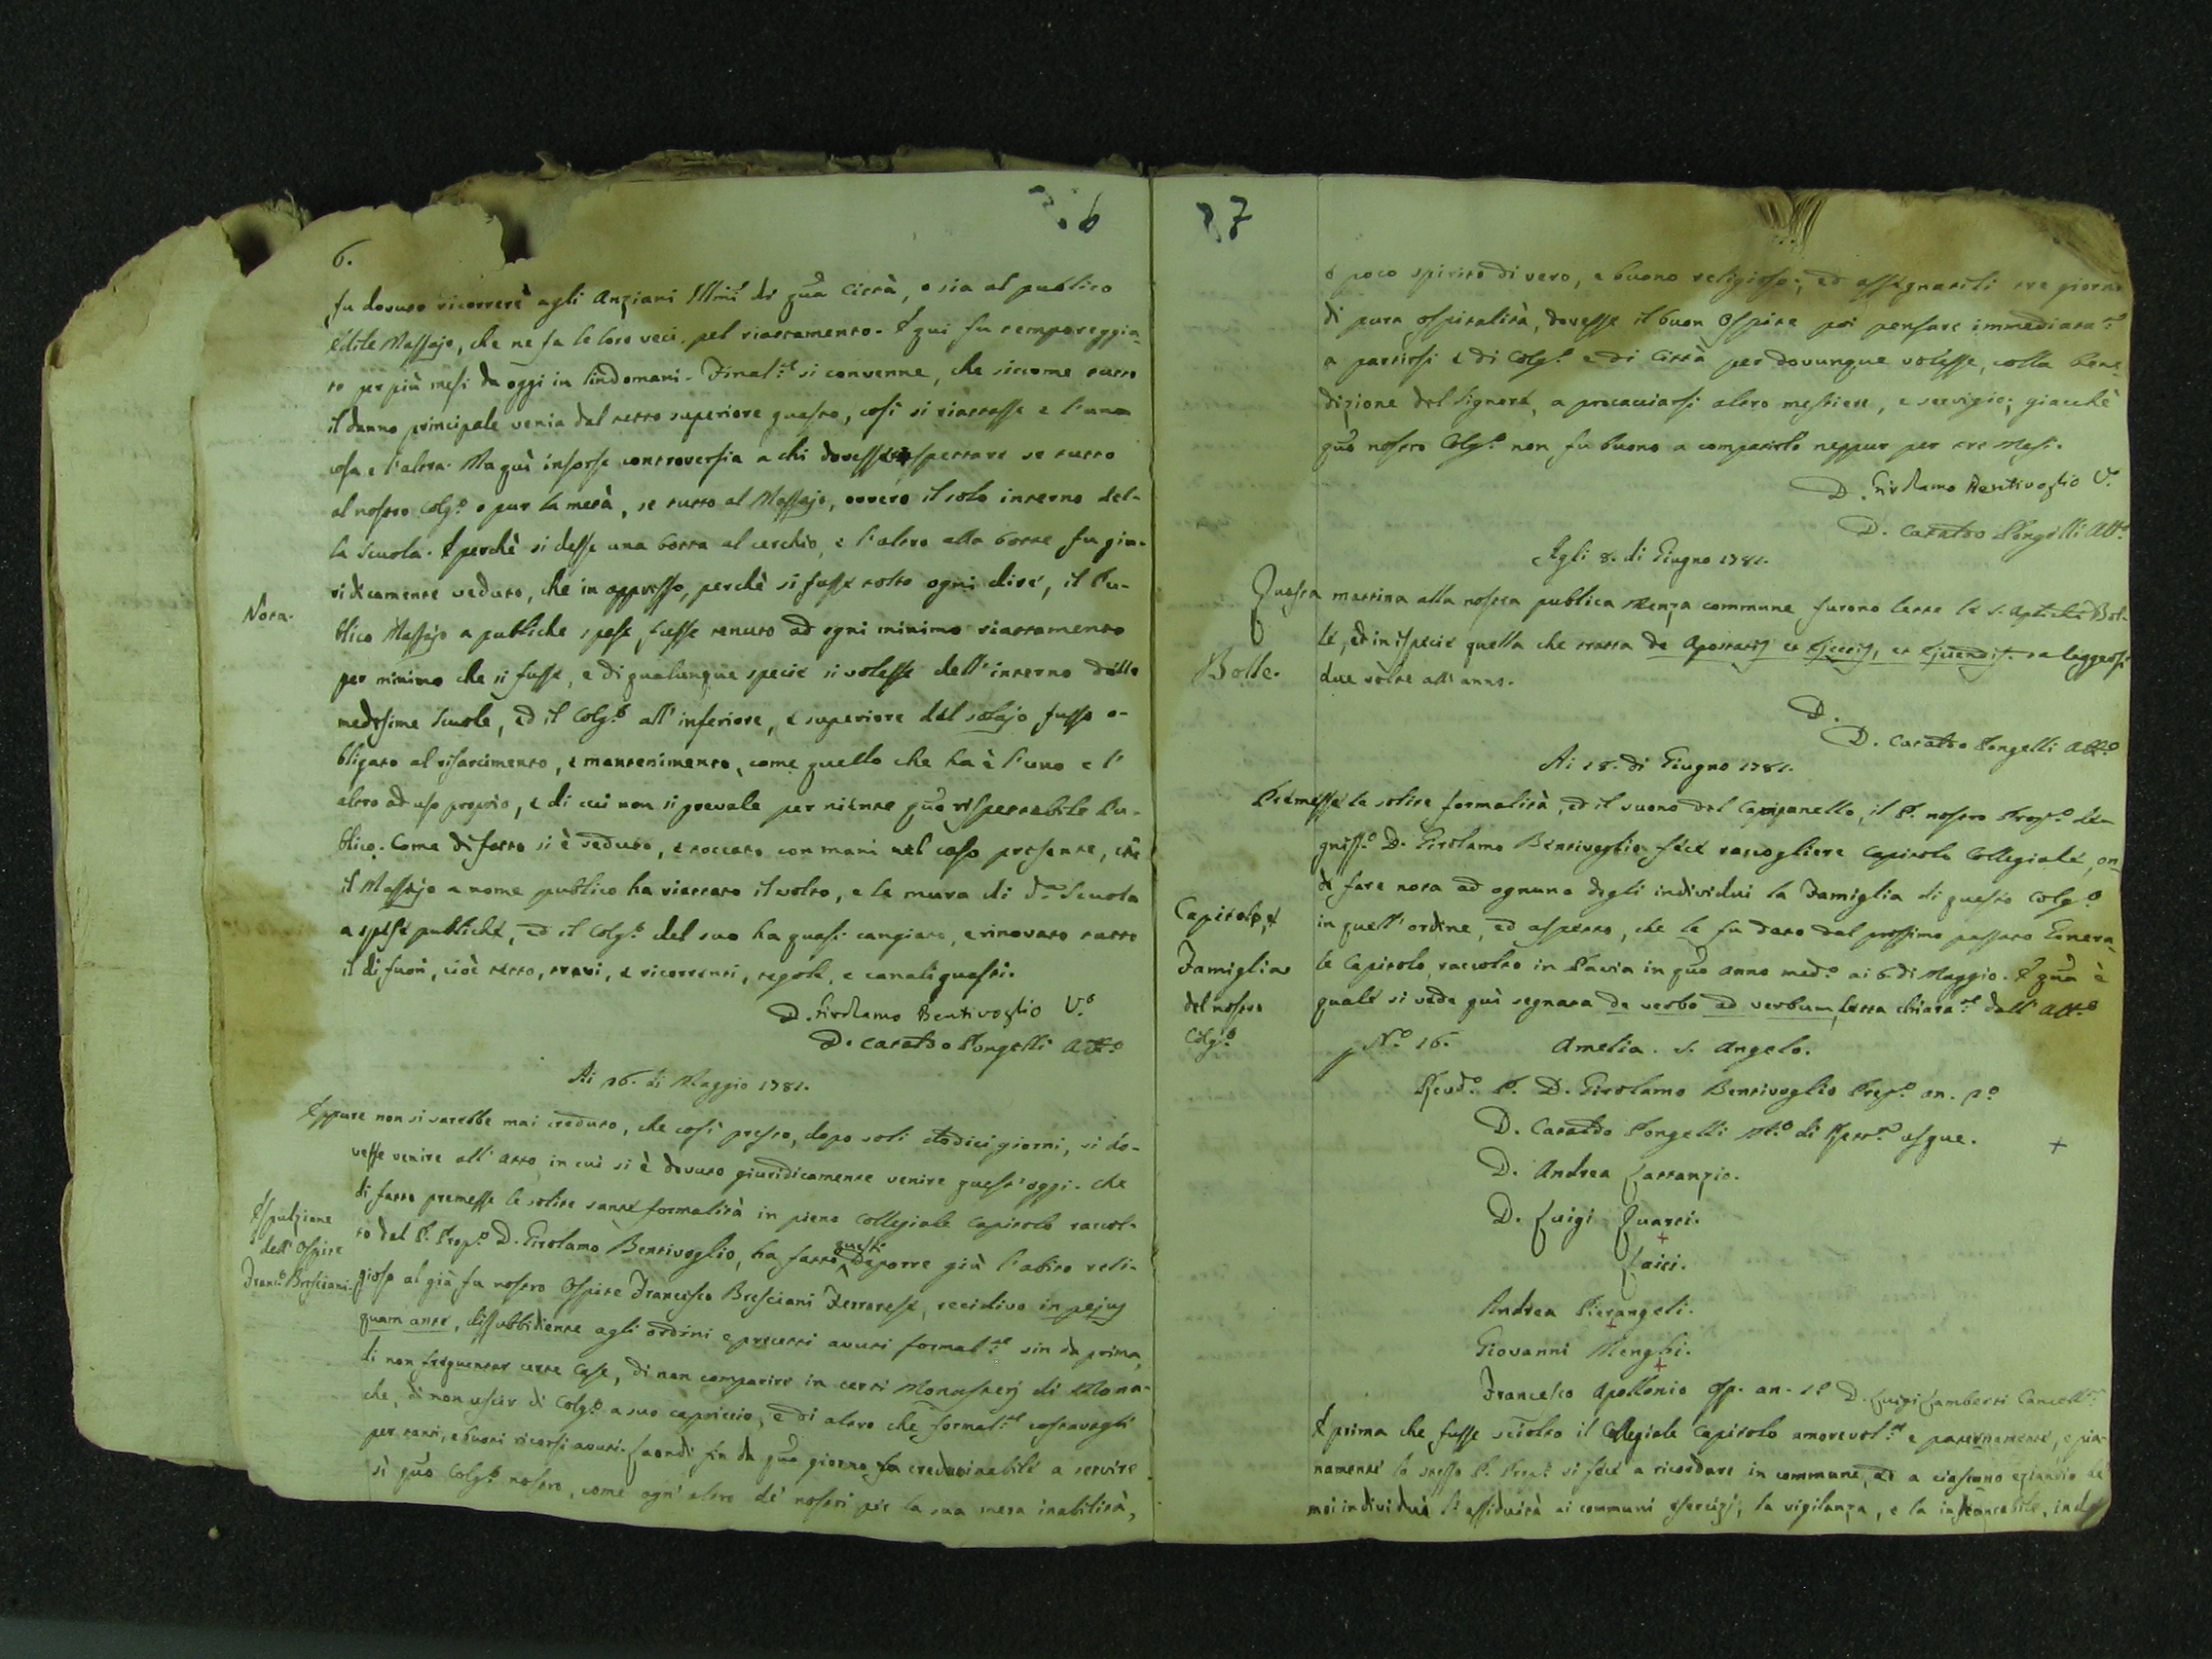 36
6.
fu dovuto ricorrere agli Anziani Ill.mi di qta Città, o sia al publico
Edile Massajo, che ne fa le loro veci pel riattamento. E qui fu temporeggia-
to per più mesi da oggi in lindomani. Final.te si convenne, che siccome tutto
il danno principale venia dal tetto superiore guasto, così si riattasse e l'una
cosa e l'altra. Ma quì insorse controversia a chi dovesse spettare se tutto
al nostro Colg.o o pur la metà, se tutto al Massajo, ovvero il solo interno del-
la Scuola. E perchè si desse una botta al cerchio, e l'altro alla botte fu giu-
ridicamente veduto, che in appresso, perchè si fusse tolto ogni dire, il Pu-
Nota.
blico Massajo a publiche spese fusse tenuto ad ogni minimo riattamento
per minimo che si fusse, e di qualunque specie si volesse dell'interno delle
medesime Scuole, ed il Colg.o all'inferiore, e superiore del solajo fusse o-
bligato al risarcimento, e mantenimento, come quello che ha è l'uno e l'
altro ad uso proprio, e di cui non si prevale per niente qto rispettabile Pu-
blico. Come di fatto si è veduto, e toccato con mani nel caso presente, che
il Massajo a nome publico ha riattato il volto, e le mura di d.a Scuola
a spese publiche, ed il Colg.o del suo ha quasi cangiato, e rinovato tutto
il di fuori, cioè tetto, travi, e ricorrenti, tegole, e canali guasti.
D. Girolamo Bentivoglio V.o
D. Cataldo Pongelli Att.o
Ai 16. di Maggio 1781.
Eppure non si sarebbe mai creduto, che così presto, dopo soli dodici giorni, si do-
vesse venire all'atto in cui si è dovuto giuridicamente venire quest'oggi. Che
di fatto premesse le solite sante formalità in pieno Collegiale Capitolo raccol-
Espulzione
dell'Ospite
Franc.o Bresciani.
to dal P. Prop.o D. Girolamo Bentivoglio, ha fatto questi deporre giù l'abito reli-
gioso al già fu nostro Ospite Francesco Bresciani Ferrarese, recidivo in pejus
quam ante, dissubbidiente agli ordini e precetti avuti formal.te sin da prima,
di non frequentar certe Case, di non comparire in certi Monasterj di Mona-
che, di non uscir di Colg.o a suo capriccio, e di altro che formal.te costavagli
per tanti, e buoni ricorsi avuti. Laonde fin da qto giorno fu inabile a servire
sì qto Colg.o nostro, come ogni altro de' nostri per la sua mera inabilità,
37
e poco spirito di vero, e buono religioso; ed assegnatili tre giorni
di pura ospitalità, dovesse il buon Ospite poi pensare immediata.te
a partirsi e di Colg.o e di Città per dovunque volesse, colla bene-
dizione del Signore, a procacciarsi altro mestiere, e servigio; giacchè
qto nostro Colg.o non fu buono a compatirlo neppur per tre Mesi.
D. Girolamo Bentivoglio V.o
D. Cataldo Pongelli Att.o
Agli 8. di Giugno 1781.
Questa mattina alla nostra publica Menza commune furono lette le s. Bol-
Bolle.
le, ed in ispecie quella che tratta de Apostatis et Ejectis, et Ejiciendis da leggersi
due volte all'anno.
D.
D. Cataldo Pongelli Att.o
Ai 18. di Giugno 1781.
Premesse le solite formalità, ed il suono del Campanello, il P. nostro Prop.o de-
gniss.o D. Girolamo Bentivoglio fece raccogliere Capitolo Collegiale, on-
de fare nota ad ognuno degli individui la Famiglia di questo Colg.o
Capitolo, e
Famiglia
del nostro
Colg.o
in quell'ordine, ed aspetto, che le fu dato dal prossimo passato Genera-
le Capitolo raccolto in Pavia in qto anno med.o ai 6 di Maggio. E qta è
quale si vede quì segnata de verbo ad verbum, letta chiara.te dall'Att.o
N.o 16. Amelia. S. Angelo.
P. D. Girolamo Bentivoglio Prep.o an. p.o
D. Cataldo Pongelli usque. +
D. Andrea Cattanzio.
D. Luigi Quarti.
+
Laici.
Andrea Pierangeli.
+
Giovanni Menghi.
+
Francesco Apollonio Osp. an. 1.o D. Luigi Lamberti Cancell.re
E prima che fusse sciolto il Collegiale Capitolo amorevol.te e paternamente, e pia-
namente lo stesso P. Prop.o si fece a ricordare in commune, ed a ciascuno eziandio de'
moi individui l'assiduità ai communi esercizj, la vigilanza, e la instancabile, inde-